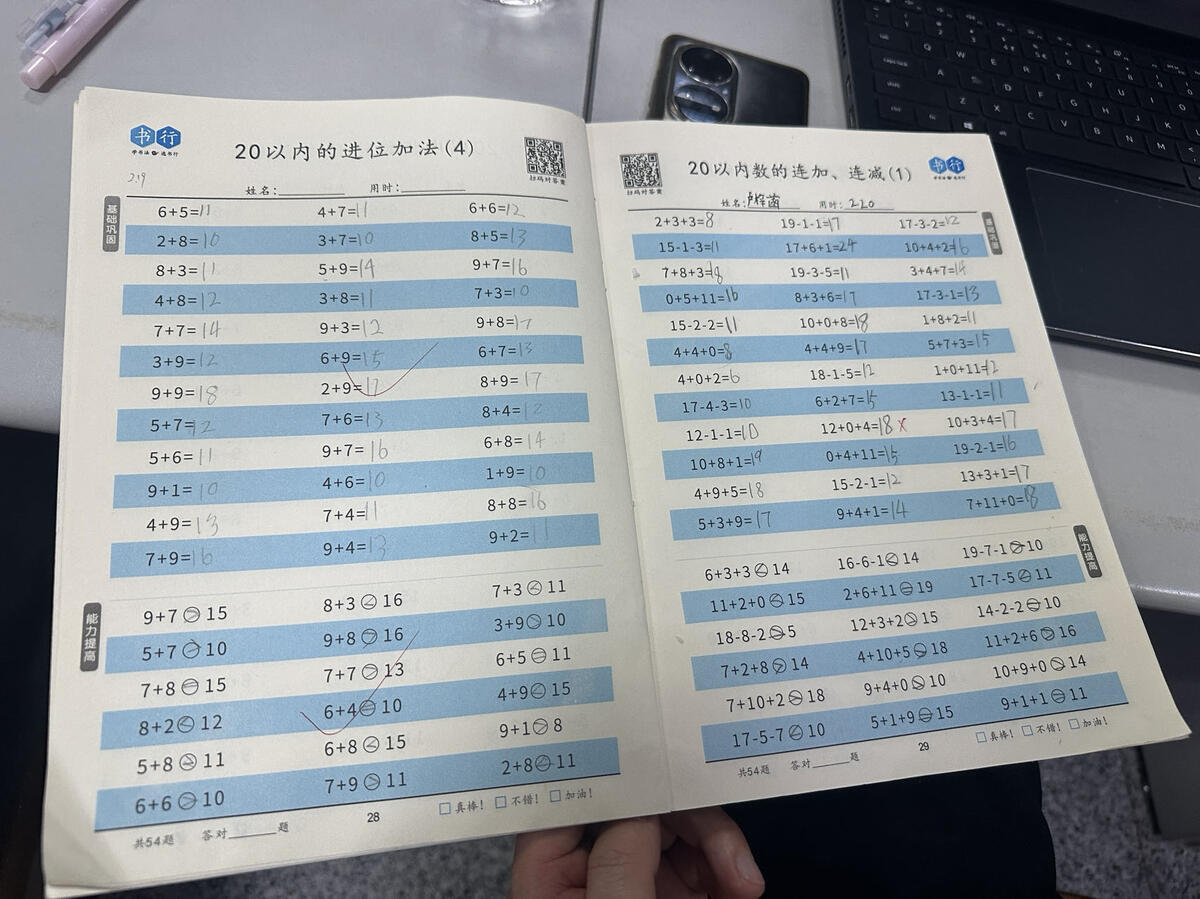 书行
学书法 选书行
20以内的进位加法(4)
扫码对答案
2.19
姓名: 用时:
基础巩固
6+5=11 4+7=11 6+6=12
2+8=10 3+7=10 8+5=13
8+3=11 5+9=14 9+7=16
4+8=12 3+8=11 7+3=10
7+7=14 9+3=12 9+8=17
3+9=12 6+9=15 6+7=13
9+9=18 2+9=11 8+9=17
5+7=12 7+6=13 8+4=12
5+6=11 9+7=16 6+8=14
9+1=10 4+6=10 1+9=10
4+9=13 7+4=11 8+8=16
7+9=16 9+4=13 9+2=11
能力提高
9+7>15 8+3<16 7+3<11
5+7>10 9+8>16 3+9>10
7+8=15 7+7>13 6+5=11
8+2<12 6+4=10 4+9<15
5+8>11 6+8<15 9+1>8
6+6>10 7+9>11 2+8<11
共54题 答对 题
28
真棒! 不错! 加油!
扫码对答案
20以内数的连加、连减(1)
书行
学书法 选书行
姓名: 用时:220
基础巩固
2+3+3=8 19-1-1=17 17-3-2=12
15-1-3=11 17+6+1=24 10+4+2=16
7+8+3=18 19-3-5=11 3+4+7=14
0+5+11=16 8+3+6=17 17-3-1=13
15-2-2=11 10+0+8=18 1+8+2=11
4+4+0=8 4+4+9=17 5+7+3=15
4+0+2=6 18-1-5=12 1+0+11=12
17-4-3=10 6+2+7=15 13-1-1=11
12-1-1=10 12+0+4=18 10+3+4=17
10+8+1=19 0+4+11=15 19-2-1=16
4+9+5=18 15-2-1=12 13+3+1=17
5+3+9=17 9+4+1=14 7+11+0=18
能力提高
6+3+3<14 16-6-1<14 19-7-1>10
11+2+0<15 2+6+11=19 17-7-5<11
18-8-2>5 12+3+2>15 14-2-2=10
7+2+8>14 4+10+5>18 11+2+6>16
7+10+2>18 9+4+0>10 10+9+0>14
17-5-7<10 5+1+9=15 9+1+1=11
共54题 答对 题
29
真棒! 不错! 加油!